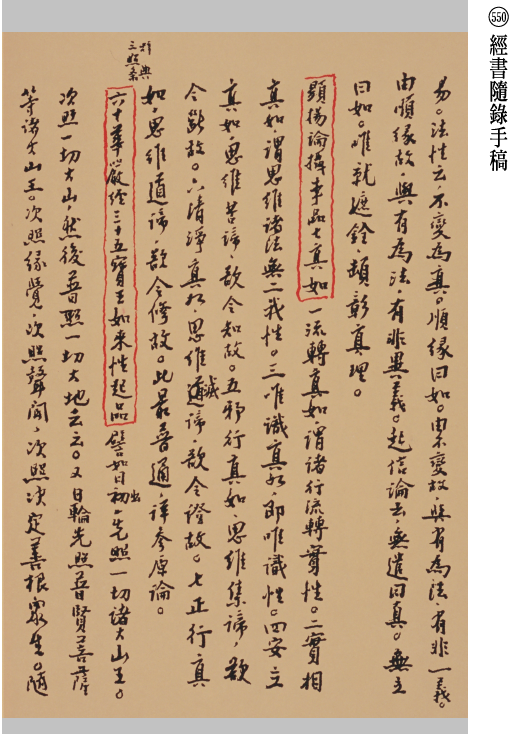 550
經書隨錄手稿
易。法性云，不變為真。順緣曰如。由不變故，與有為法，有非一義。
由順緣故，與有為法，有非異義。起信論云，無遣曰真。無立
曰如。唯就遮銓，頓彰真理。
顯揚論攝事品七真如 一流轉真如，謂諸行流轉實性。二實相
真如，謂思維諸法無二我性。三唯識真如，即唯識性。四安立
真如，思維苦諦，欲令知故。五邪行真如，思維集諦，欲
令斷故。六清淨真如，思維滅諦，欲令證故。七正行真
如，思維道諦，欲令修故。此最普通，詳參原論。
三照
六十華嚴經三十五寶王如來性起品 譬如日初出，先照一切諸大山王。
次照一切大山，然後普照一切大地云云。又日輪先照普賢菩薩
等諸大山王。次照緣覺，次照聲聞，次照決定善根眾生。隨